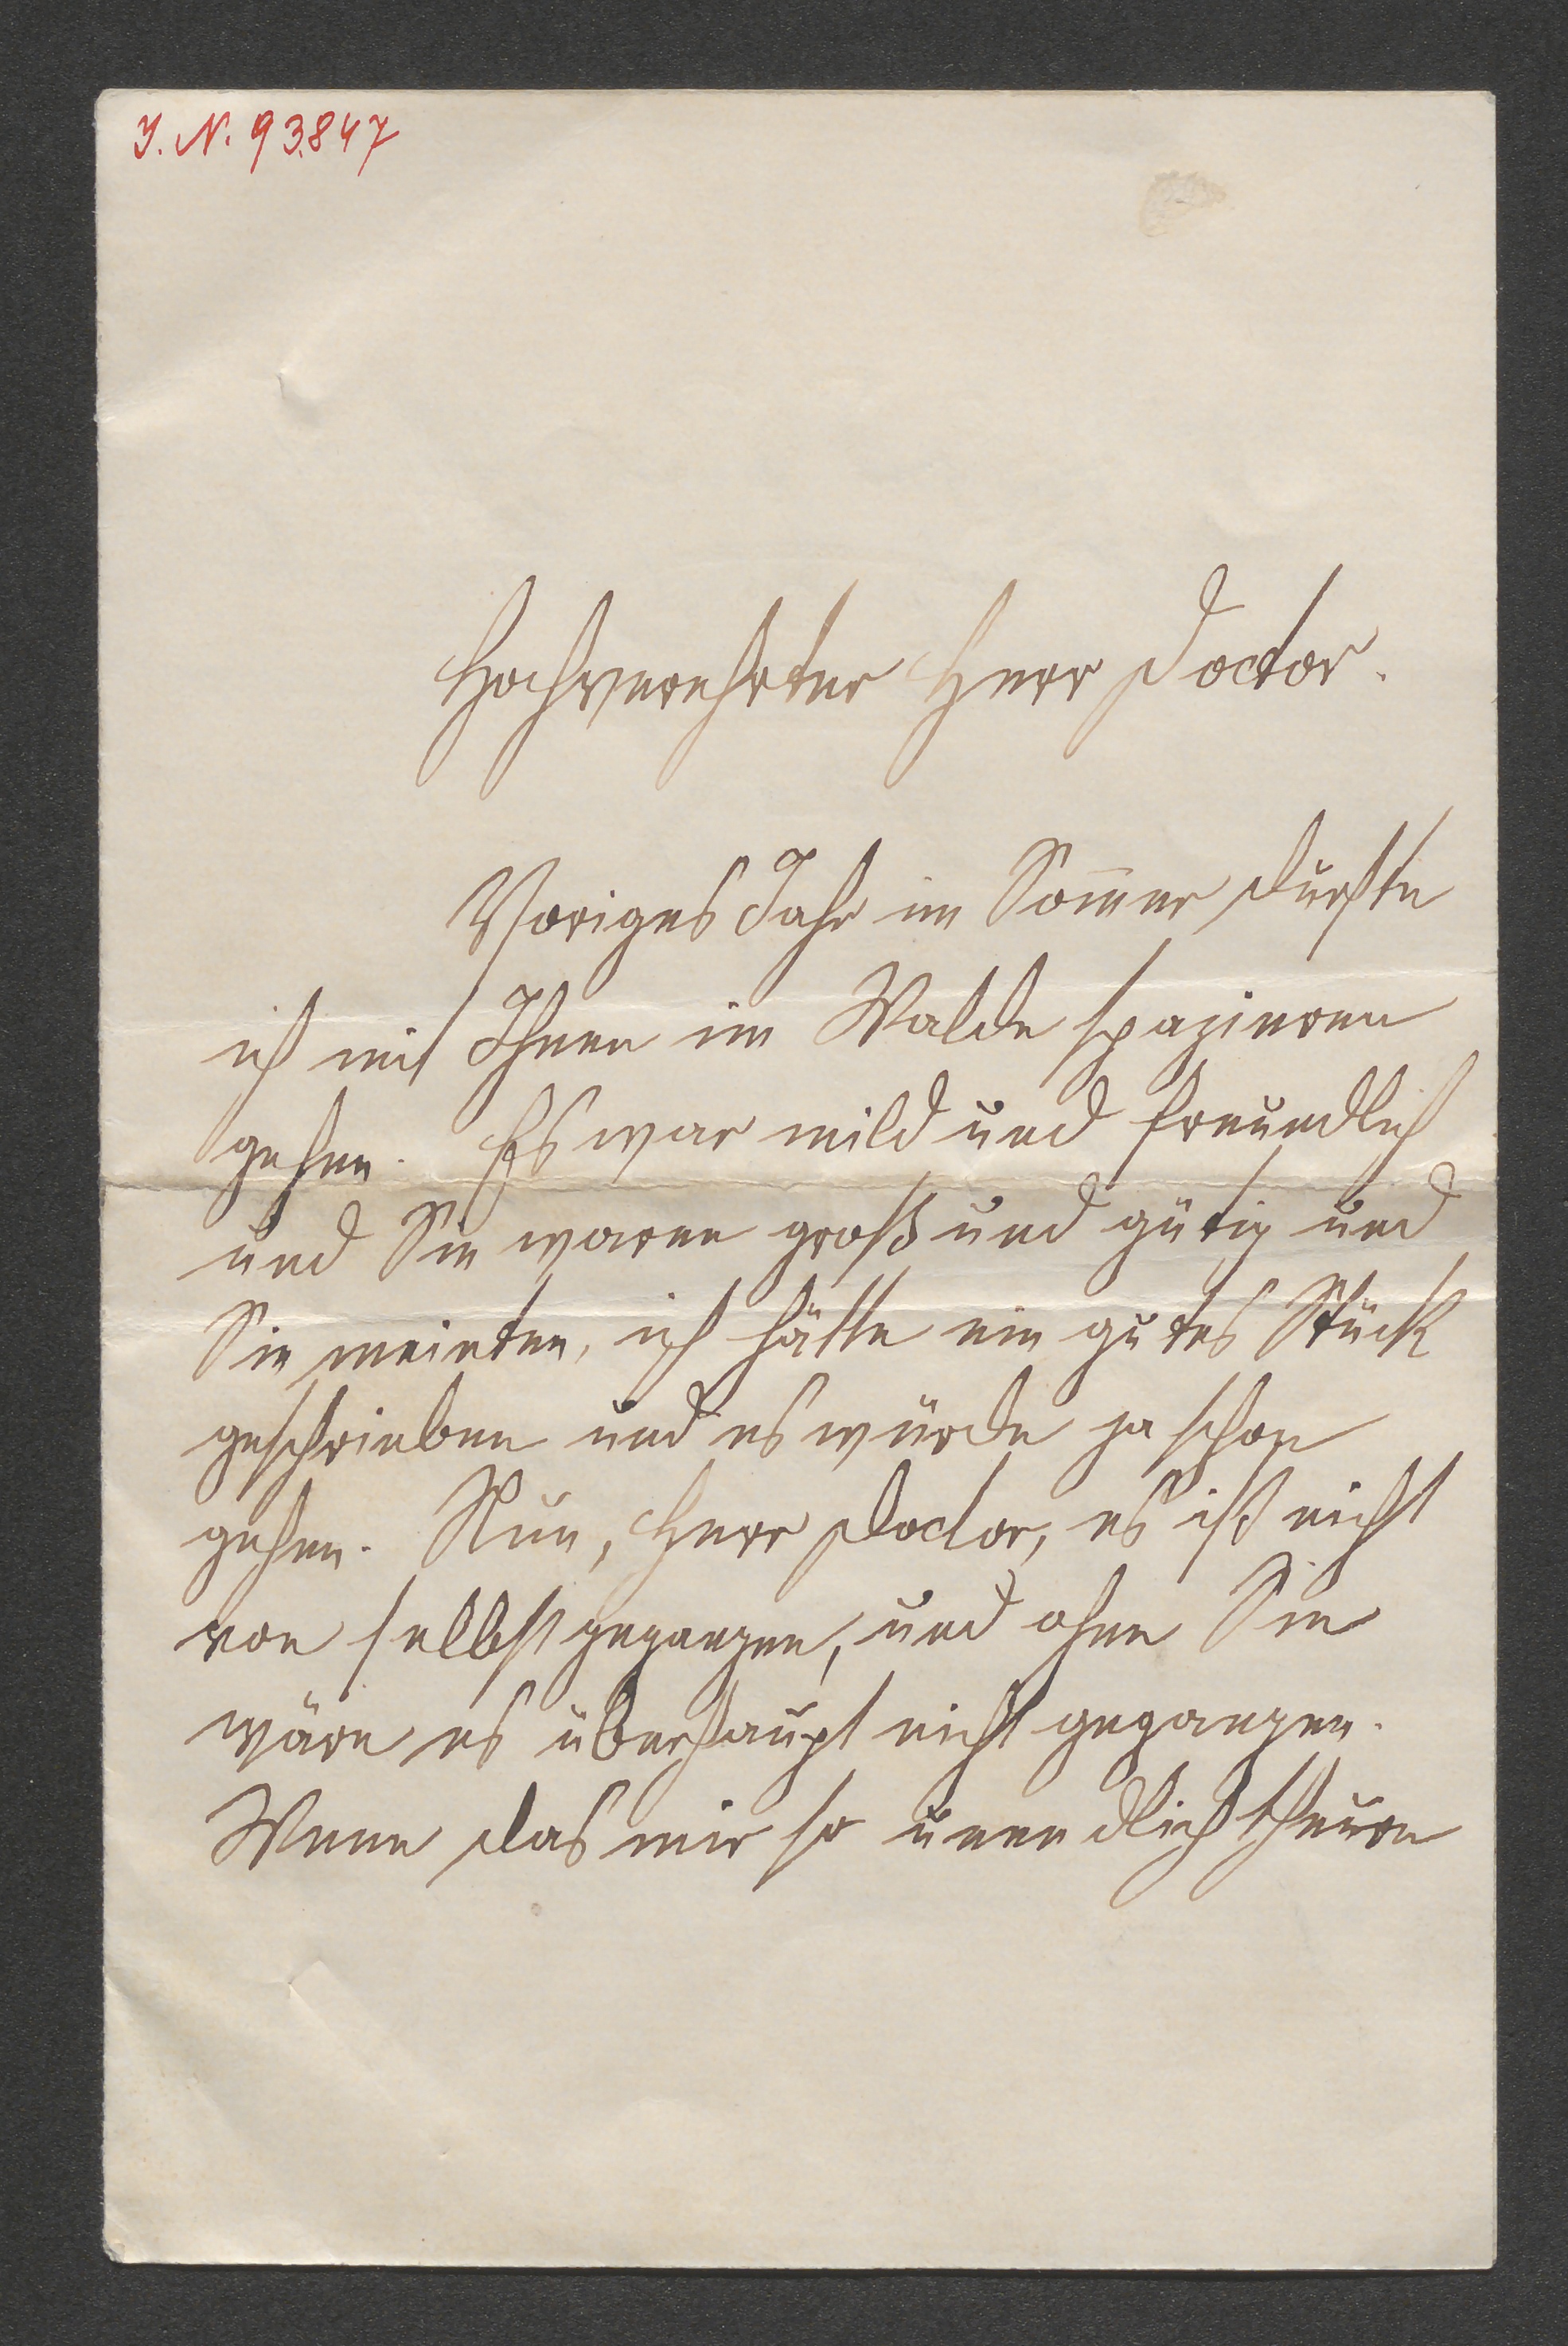 J. N. 93.847
Hochverehrter Herr Doctor.
Voriges Jahr im Som̄er durfte
ich mit Ihnen im Walde spazieren
gehen. Es war mild und freundlich
und Sie waren groß und gütig und
Sie meinten, ich hätte ein gutes Stück
geschrieben und es würde ja schon
gehen. Nun, Herr Doctor, es ist nicht
von selbst gegangen, und ohne Sie
wäre es überhaupt nicht gegangen.
Wenn das mir so unendlich theure